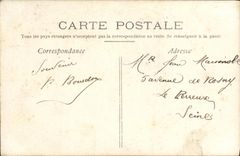 CARTE POSTALE
Tous les pays étrangers n'acceptent pas la correspondance au recto. (Se renseigner à la poste).
Correspondance
Adresse
Souvenir
P Bourdon
Mlle
5 avenue de Rosny
Le Perreux
Seine